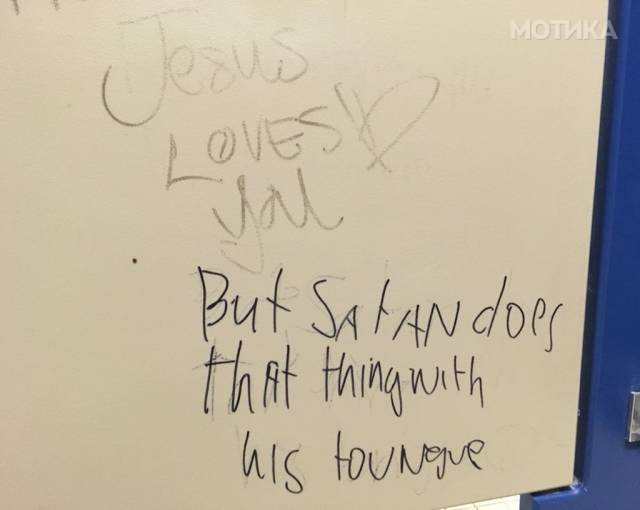 МОТИКА
Jesus
LOVES
you
But SAtAN does
that thing with
his toungue